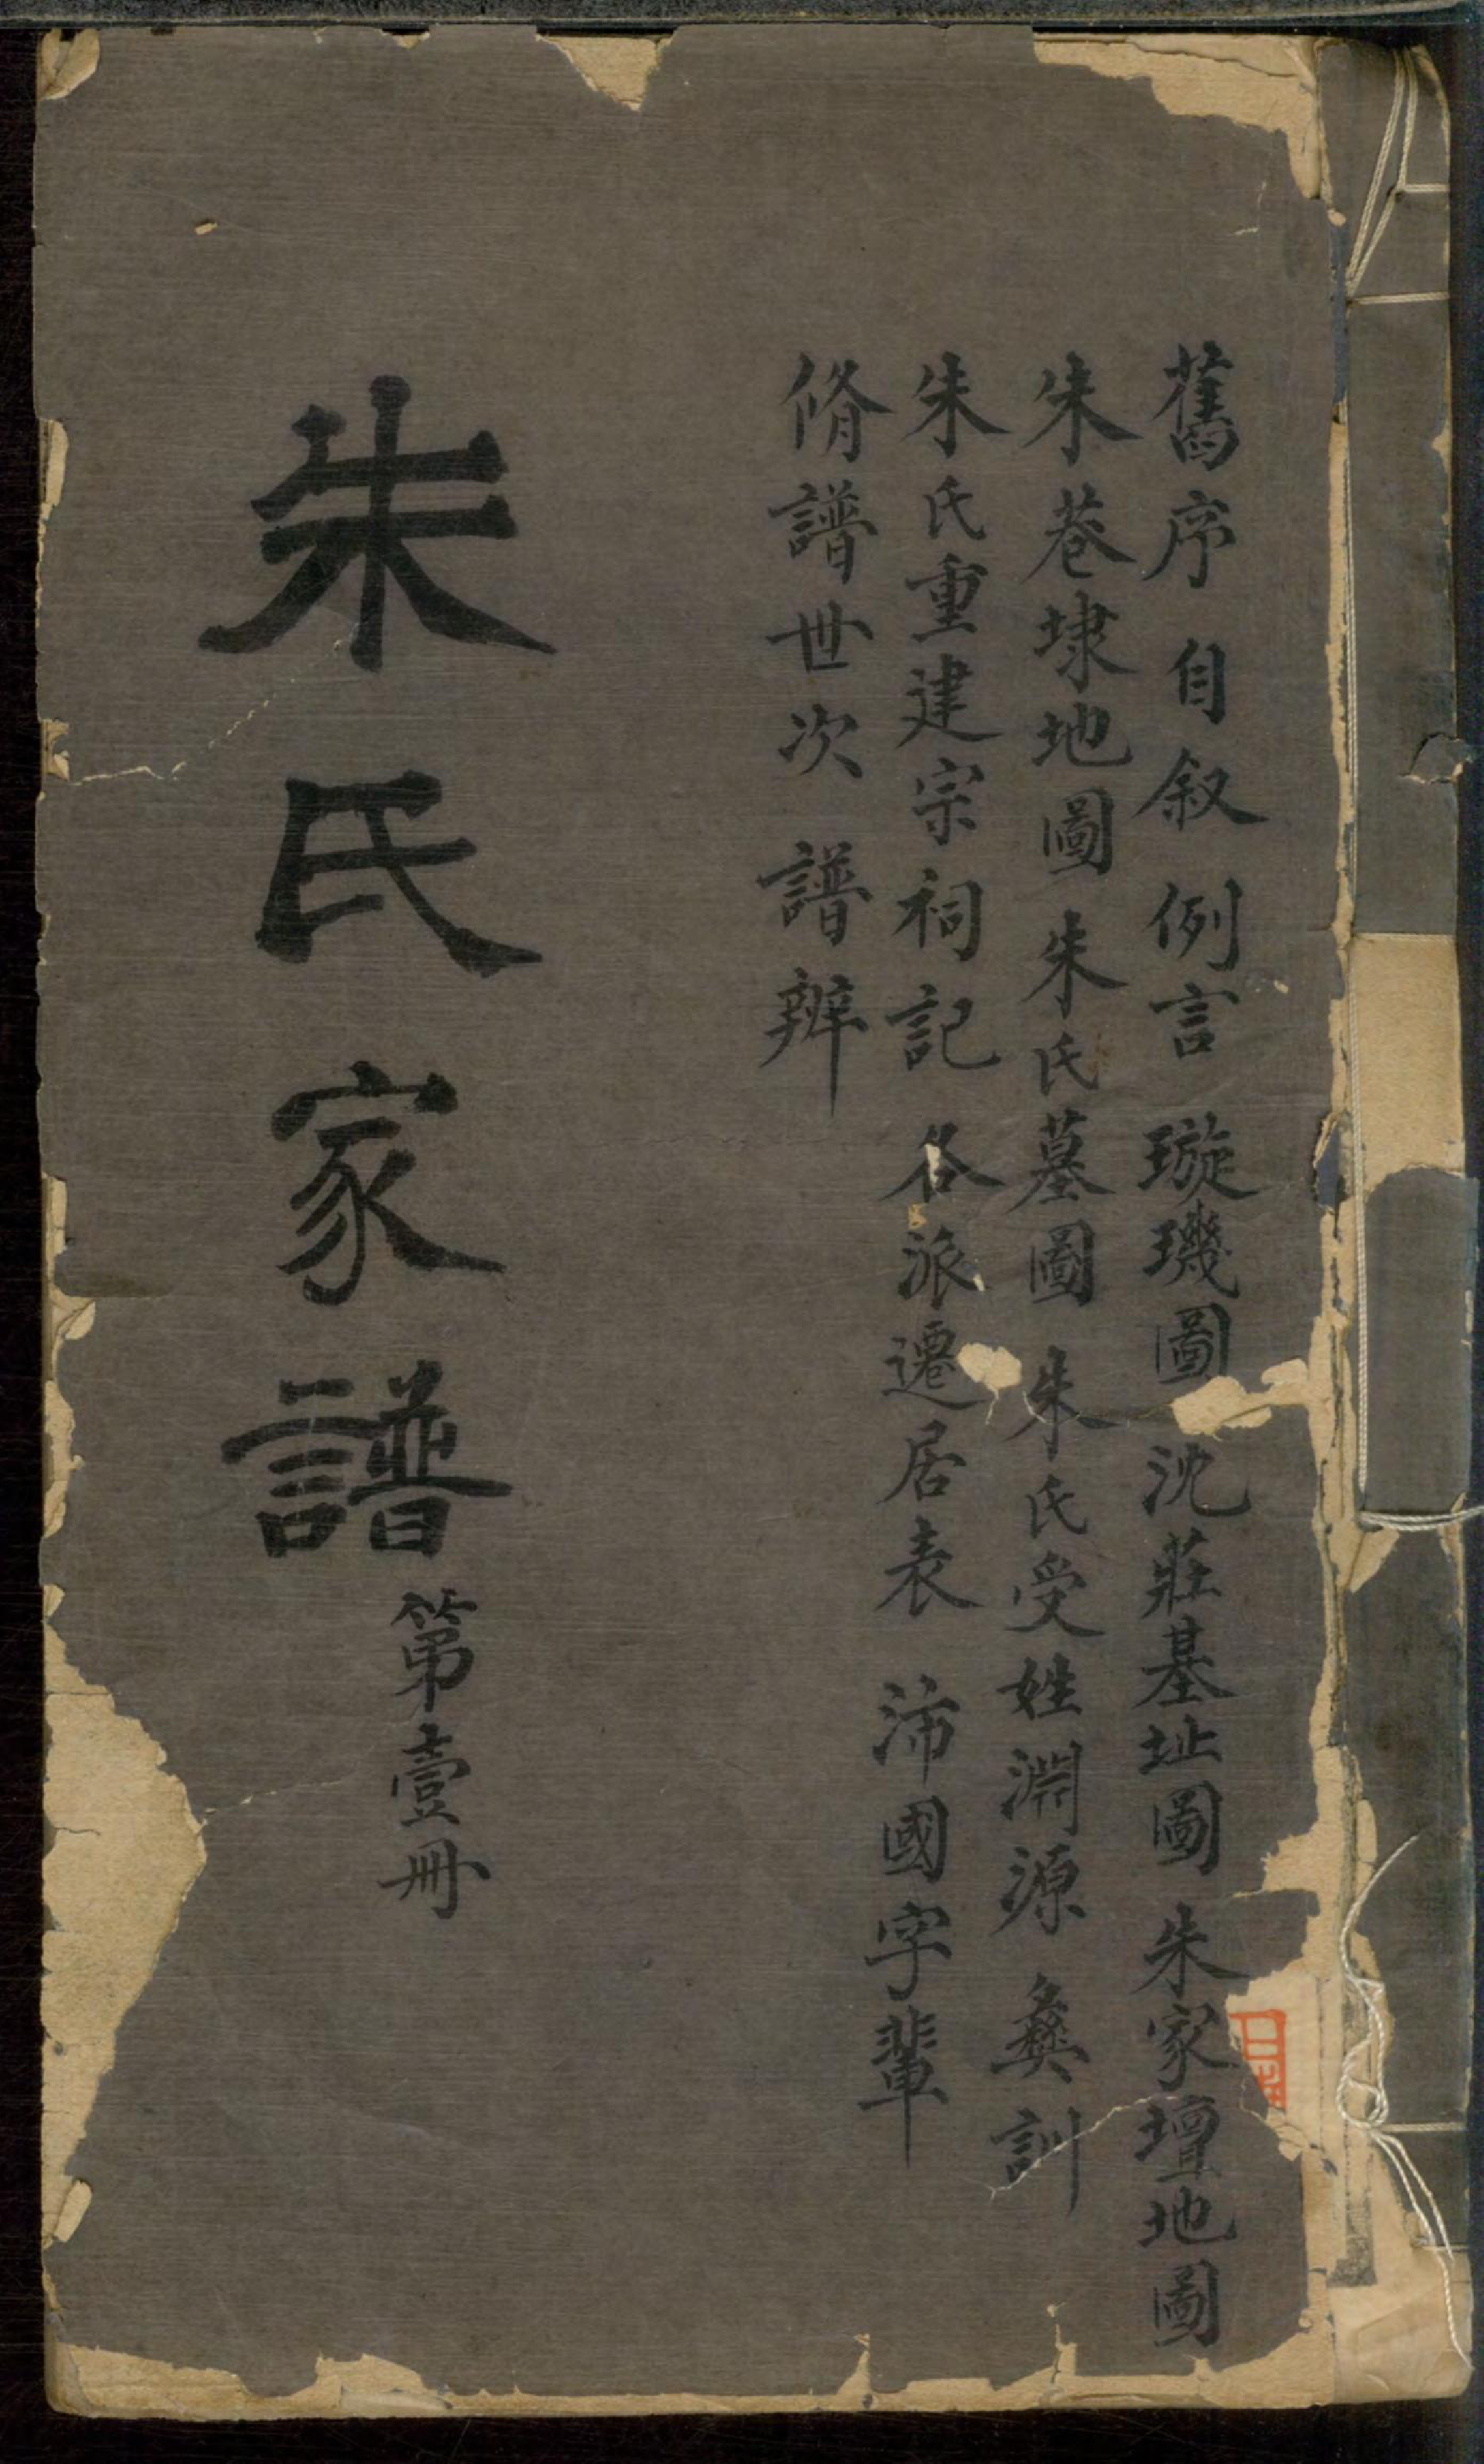 舊序 自叙 例言 璇璣圖 沈莊基址圖 朱家壇地圖
朱巷埭地圖 朱氏墓圖 朱氏受姓淵源 彝訓
朱氏重建宗祠記 各派遷居表 沛國字輩
脩譜世次 譜辨
朱氏家譜 第壹冊